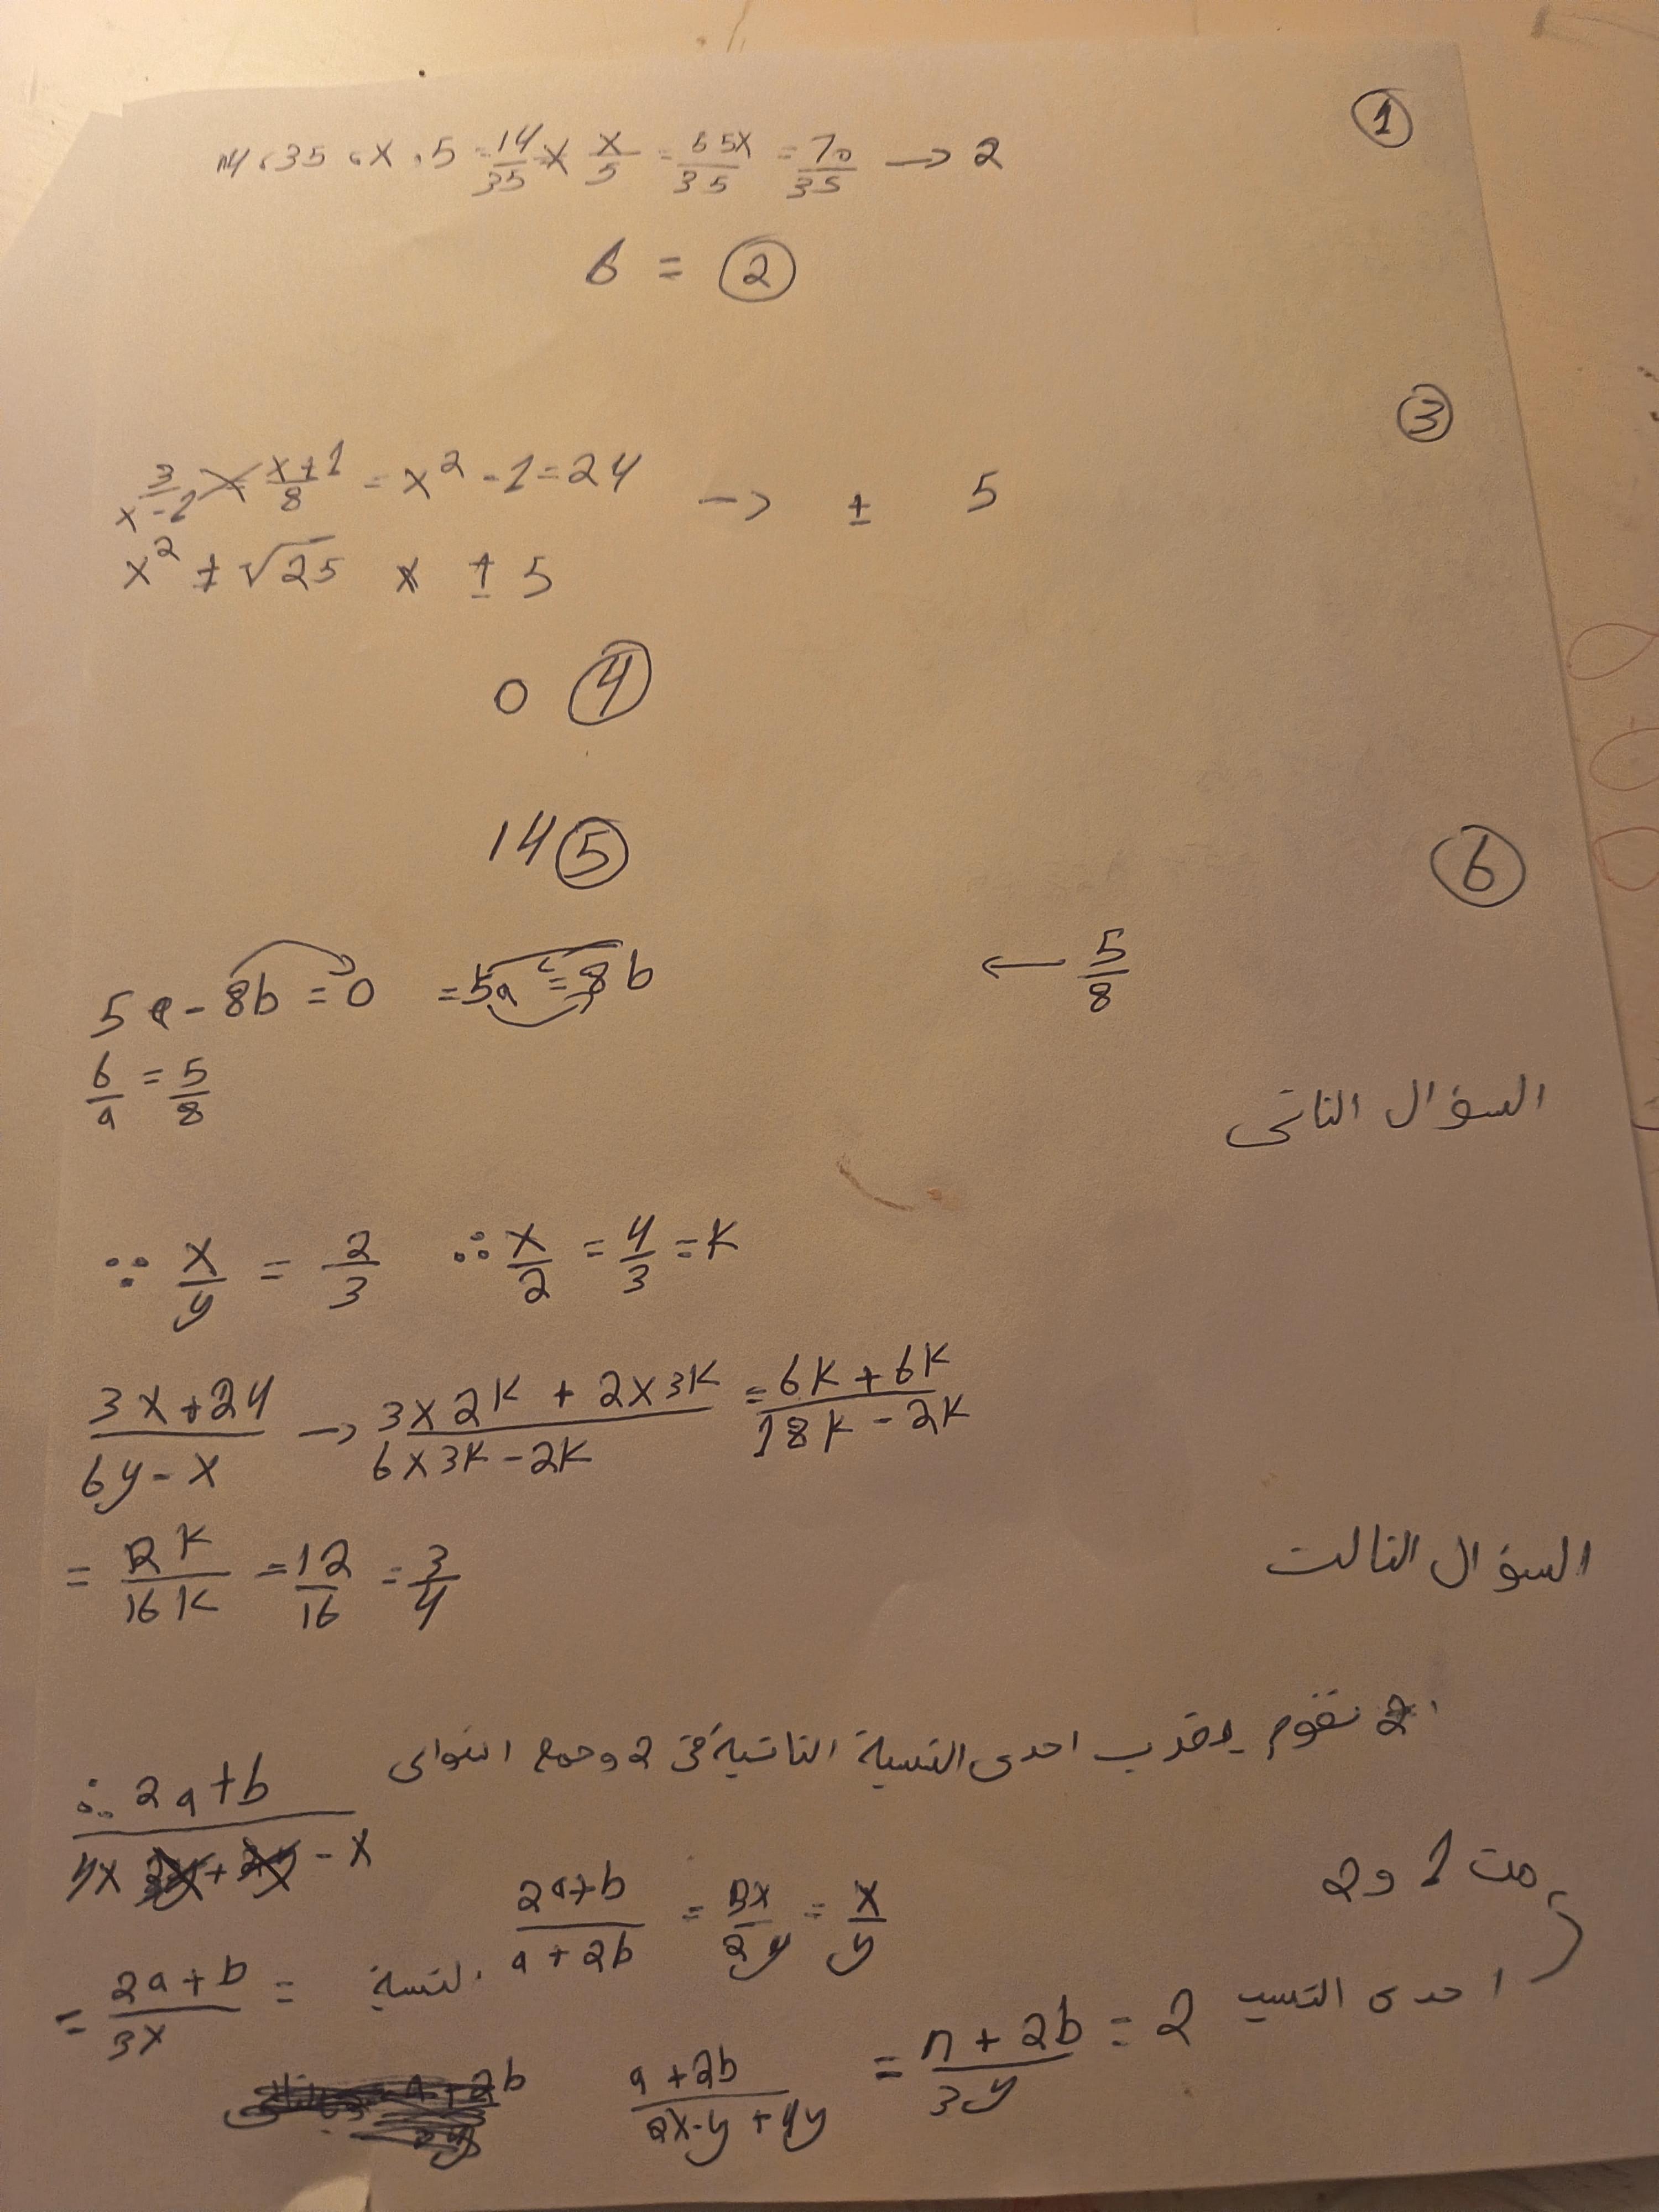 ①
14 ، 35 ، x ، 5 = 14/35 × x/5 = 35x/35 = 70/35 → 2
6 = ②
③
3/x-1 × x+1/8 = x² - 1 = 24 → ± 5
x² ± √25 x ± 5
0 ④
14 ⑤
⑥
5a - 8b = 0 = 5a = 8b ← 5/8
b/a = 5/8
السؤال الثانى
∵ x/y = 2/3 ∴ x/2 = y/3 = K
3x+2y/6y-x → 3x2K + 2x3K/6x3K-2K = 6K+6K/18K-2K
= 12K/16K = 12/16 = 3/4
السؤال الثالث
2 نقوم بضرب احدى النسبة الثانية فى 2 وجمع التوالى
∴ 2a+b/4x - x
من 1 و 2
2a+b/a+2b = 3x/3y = x/y
= 2a+b/3x = النسبة
a+2b/2x-y+4y = a+2b/3y = 2 احدى النسب